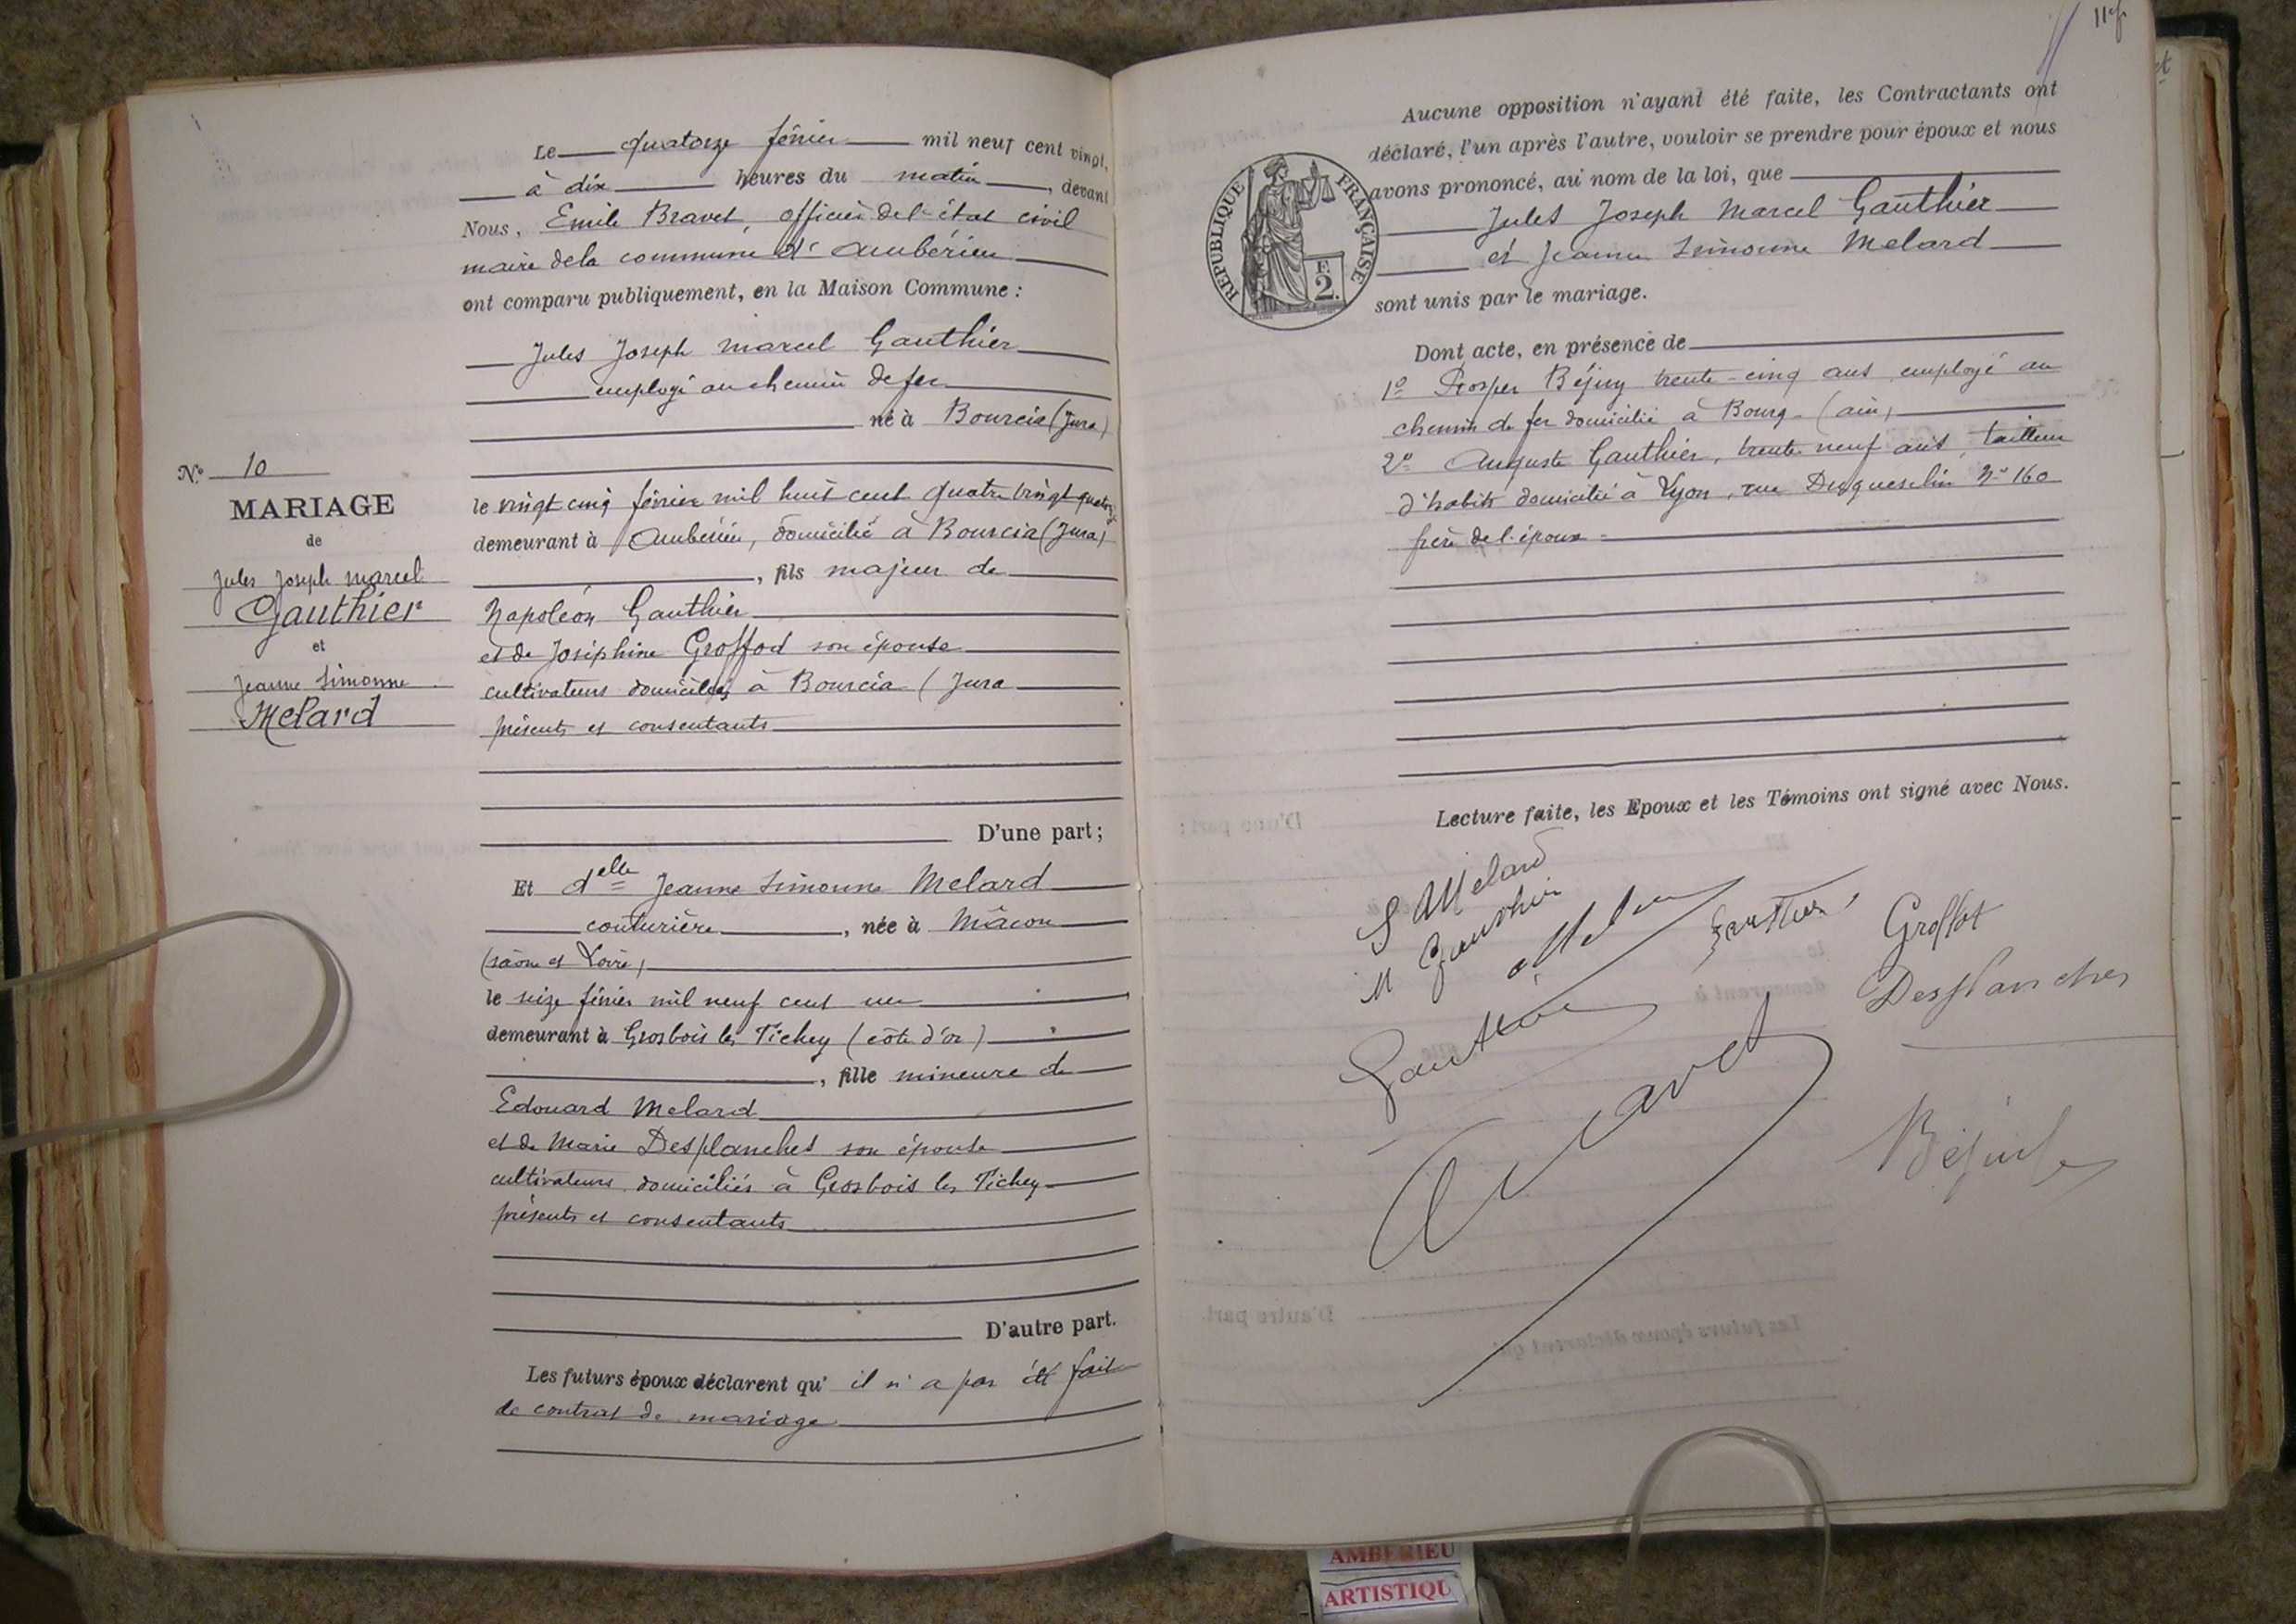 Le quatorze février mil neuf cent vingt,
à dix heures du matin, devant
Nous, Emile Bravet, officier de l'état civil
maire de la commune d'Ambérieu
ont comparu publiquement, en la Maison Commune :
Jules Joseph Marcel Gauthier
employé au chemin de fer
né à Bourcia (Jura)
N.º 10
MARIAGE
de
Jules Joseph Marcel
Gauthier
et
Jeanne Simonne
Melard
le vingt cinq février mil huit cent quatre vingt quatorze
demeurant à Ambérieu, domicilié à Bourcia (Jura)
, fils majeur de
Napoléon Gauthier
et de Joséphine Groffod son épouse
cultivateurs domiciliés à Bourcia (Jura
présents et consentants
D'une part ;
Et delle Jeanne Simonne Melard
couturière, née à Mâcon
(Saône et Loire)
le seize février mil neuf cent un
demeurant à Grosbois les Tichey (côte d'or)
, fille mineure de
Edouard Melard
et de Marie Desplanches son épouse
cultivateurs domiciliés à Grosbois les Tichey
présents et consentants
D'autre part.
Les futurs époux déclarent qu'il n'a pas été fait
de contrat de mariage
Aucune opposition n'ayant été faite, les Contractants ont
déclaré, l'un après l'autre, vouloir se prendre pour époux et nous
avons prononcé, au nom de la loi, que
Jules Joseph Marcel Gauthier
et Jeanne Simonne Melard
sont unis par le mariage.
RÉPUBLIQUE FRANÇAISE
F.
2.
Dont acte, en présence de
1º Prosper Béjuy trente-cinq ans employé au
chemin de fer domicilié à Bourg (Ain)
2º Auguste Gauthier, trente neuf ans, tailleur
d'habits domicilié à Lyon, rue Duguesclin Nº 160
frère de l'époux
Lecture faite, les Epoux et les Témoins ont signé avec Nous.
S Melard
M Gauthier
Melard
Gauthier
Groffod
Desplanches
Gauthier
Bravet
AMBERIEU
ARTISTIQU